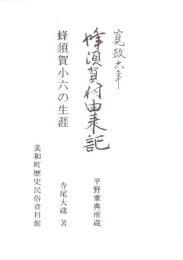 寛政六年
蜂須賀村由来記
平野重典所蔵
蜂須賀小六の生涯
寺尾大蔵 著
美和町歴史民俗資料館